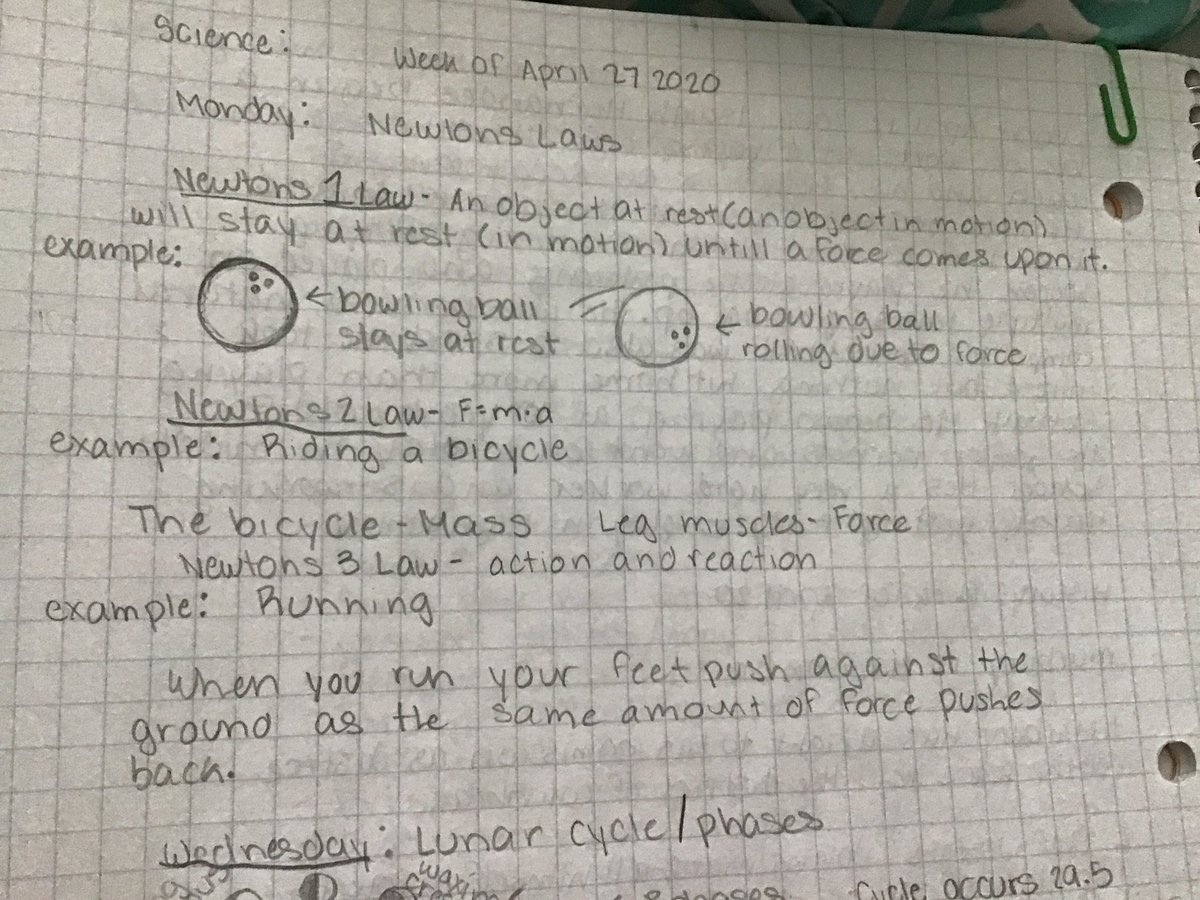 Science: Week of April 27 2020
Monday: Newtons Laws
Newtons 1 Law - An object at rest (an object in motion)
will stay at rest (in motion) untill a force comes upon it.
example:
← bowling ball
stays at rest
← bowling ball
rolling due to force
Newtons 2 Law - F=m·a
example: Riding a bicycle
The bicycle - Mass Leg muscles - Force
Newtons 3 Law - action and reaction
example: Running
When you run your feet push against the
ground as the same amount of force pushes
back.
Wednesday: Lunar cycle/phases
cycle occurs 29.5